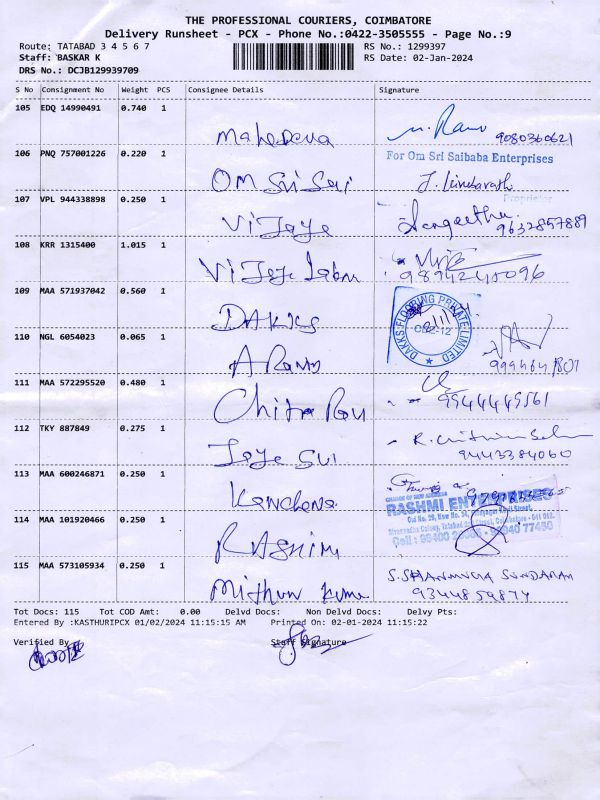 THE PROFESSIONAL COURIERS, COIMBATORE
Delivery Runsheet - PCX - Phone No.:0422-3505555 - Page No.:9
Route: TATABAD 3 4 5 6 7
RS No.: 1299397
Staff: BASKAR K
RS Date: 02-Jan-2024
DRS No.: DCJB129939709
S No Consignment No Weight PCS Consignee Details Signature
105 EDQ 14990491 0.740 1
Mahedeva
9080360621
106 PNQ 757001226 0.220 1
For Om Sri Saibaba Enterprises
OM Sri Sai
Proprietor
107 VPL 944338898 0.250 1
Vijaye Sangeetha
9632857889
108 KRR 1315400 1.015 1
Vijeye
9894240096
109 MAA 571937042 0.560 1
DAKKS
DAKKS FLOORING PRIVATE LIMITED
CBE-12
110 NGL 6054023 0.065 1
111 MAA 572295520 0.480 1
Chitra
9944449561
112 TKY 887849 0.275 1
Jaye Sui
9443384060
113 MAA 600246871 0.250 1
Kanchana
CHANGE OF NEW ADDRESS
RASHMI ENTERPRISES
114 MAA 101920466 0.250 1
RASHIMI
115 MAA 573105934 0.250 1
Mithun Kumar
S. SHANMUGA SUNDARAM
9344859874
Tot Docs: 115 Tot COD Amt: 0.00 Delvd Docs: Non Delvd Docs: Delvy Pts:
Entered By :KASTHURIPCX 01/02/2024 11:15:15 AM Printed On: 02-01-2024 11:15:22
Verified By Staff Signature